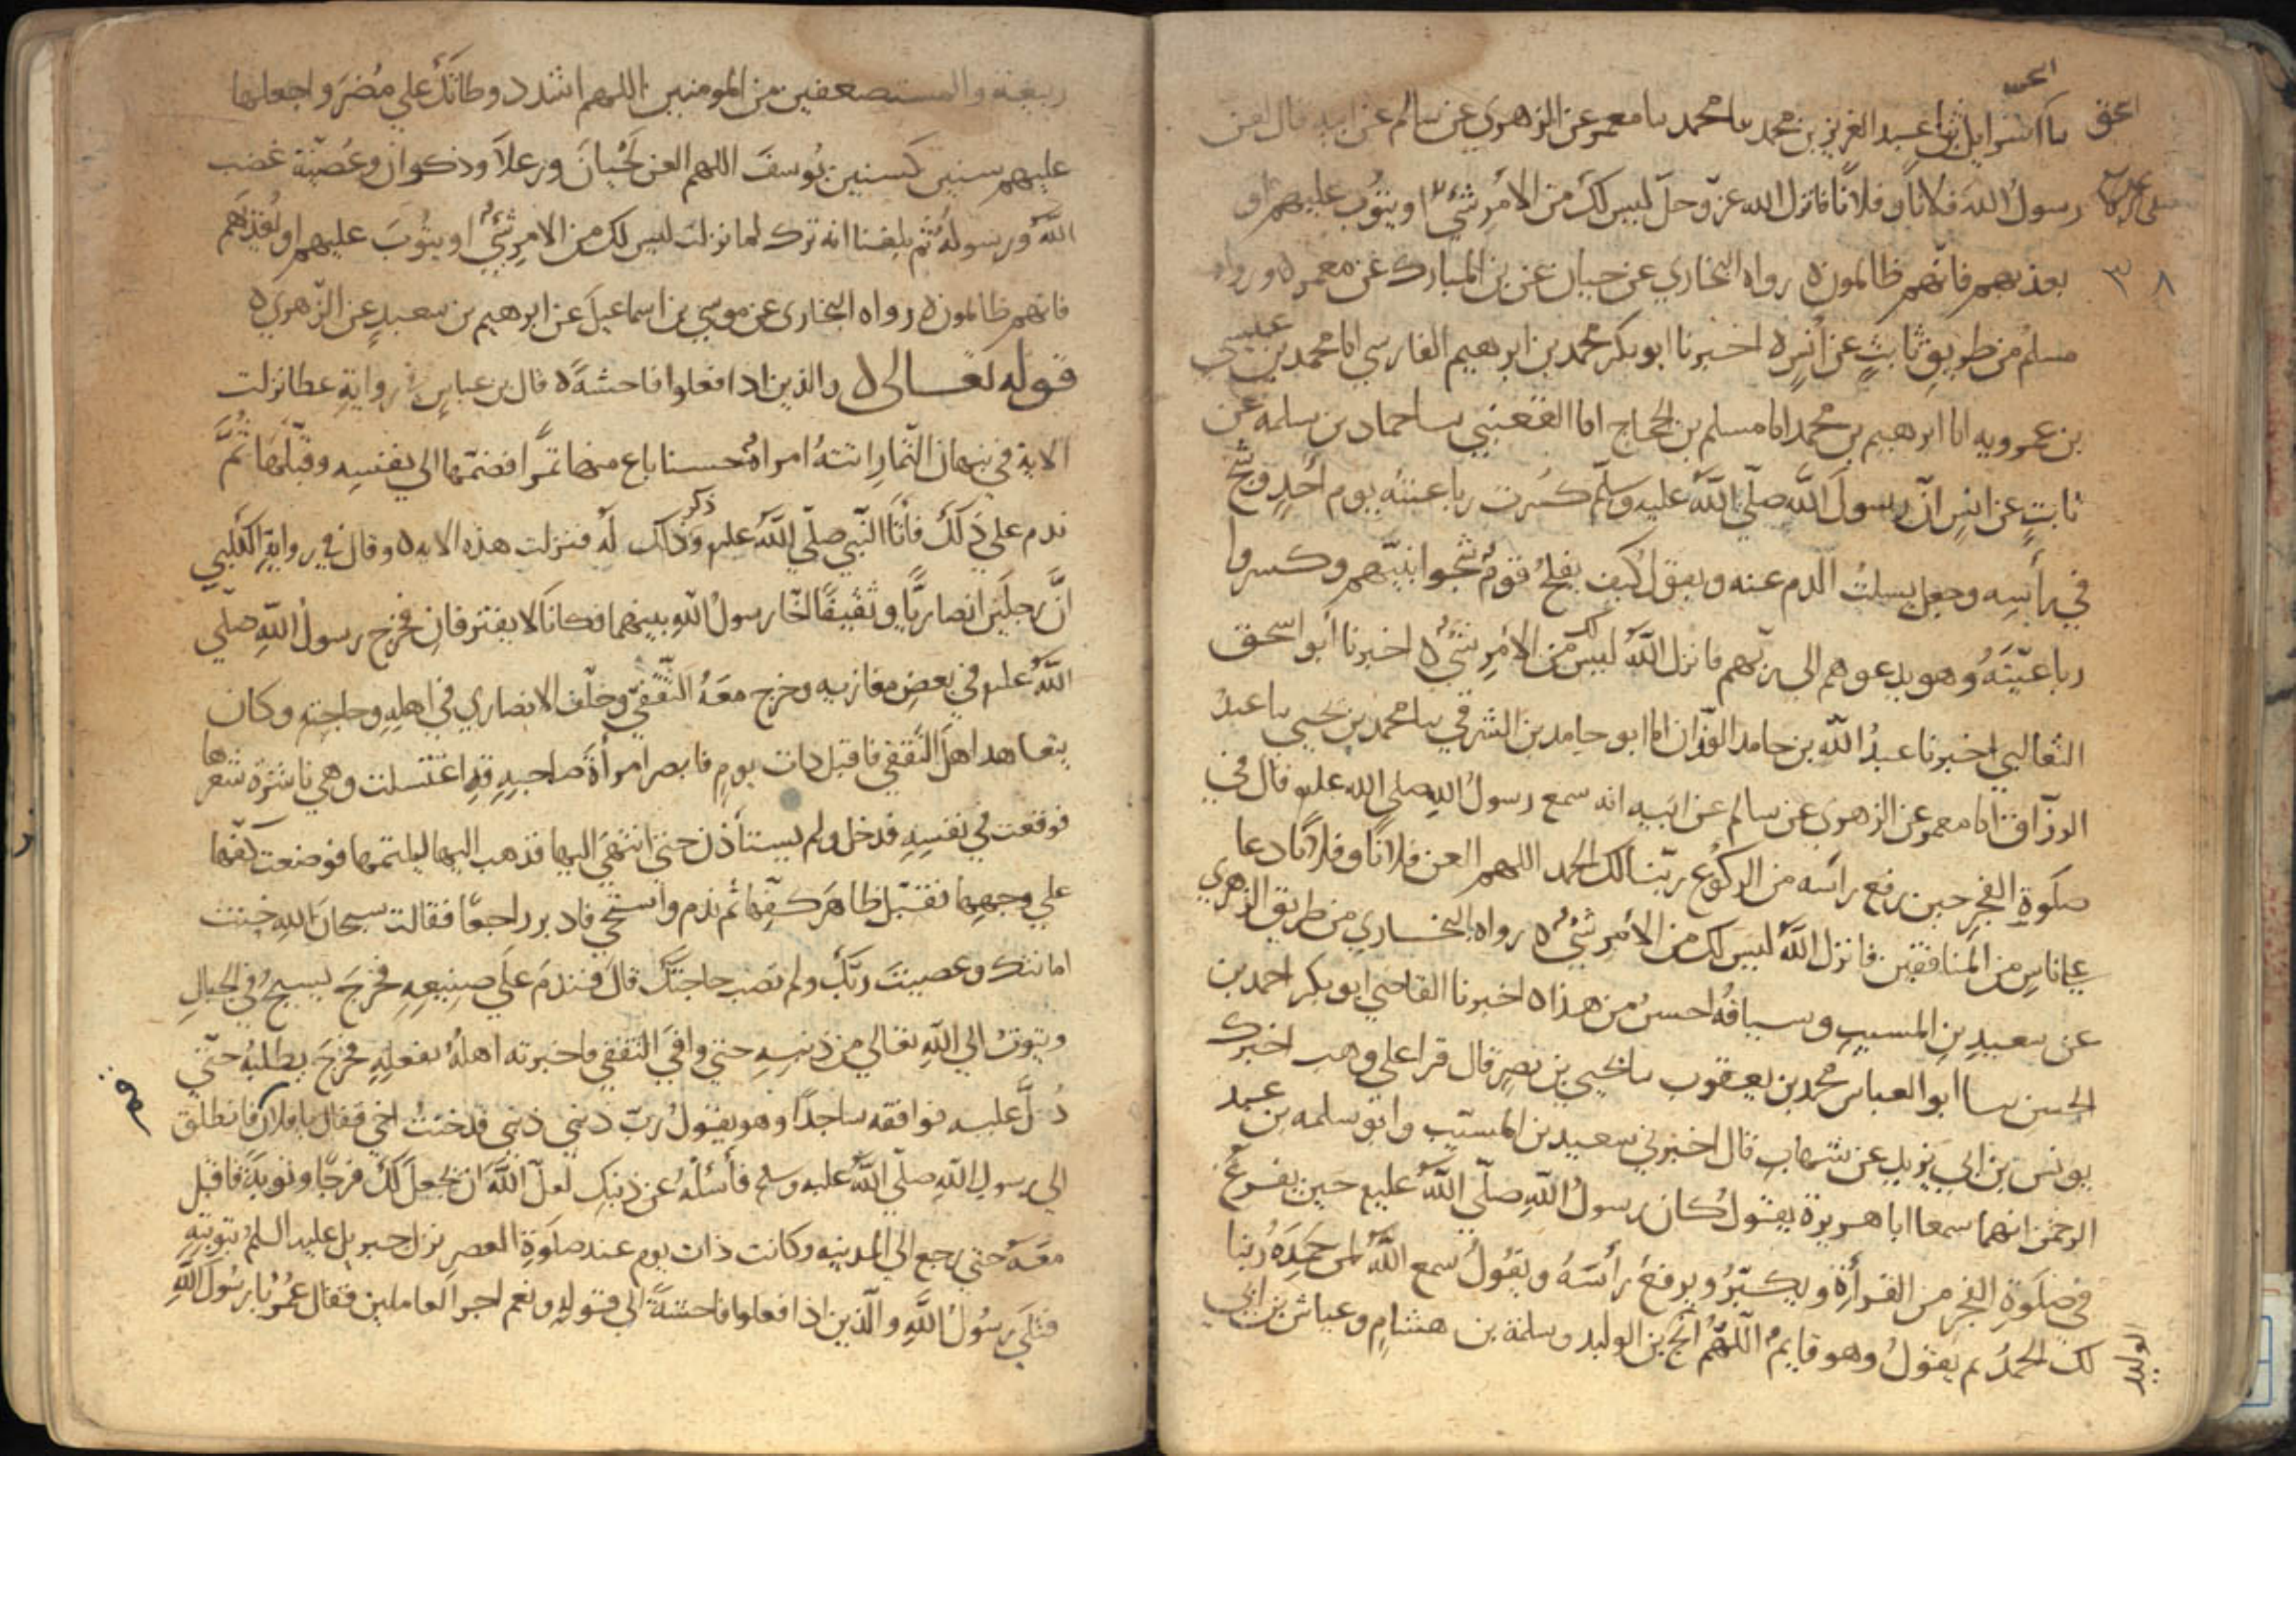 اسحق
نا اسرايل نا عبد العزيز بن محمد نا محمد نا معمر عن الزهري عن سالم عن ابيه قال لعن
رسولُ الله فلانًا وفلانًا فانزل الله عزّ وجلّ ليس لكَ من الامرِ شيءٌ او يتوبَ عليهم او
يعذبهم فانّهم ظالمون ه رواه البخاري عن حبان عن بن المبارك عن معمر ه ورواه
٣٨
مسلمُ من طريقِ ثابتٍ عن انسٍ ه اخبرنا ابو بكر محمد بن ابرهيم الفارسي انا محمد بن عيسى
بن عمرويه انا ابرهيم بن محمد انا مسلم بن الحجاج انا القعنبي نا حماد بن سلمه عن
ثابتٍ عن انسٍ انّ رسولَ اللّه صلّي اللّهُ عليه وسلّم كُسرت رباعيتُه يوم اُحُدٍ وشجّ
في رأسِه وجعل يسلتُ الدم عنه ويقولُ كيف يفلحُ قومٌ شجّوا نبيّهم وكسروا
رباعيّتَهُ وهو يدعوهم الي ربّهم فانزل اللّهُ ليس لك من الامرِ شيءٌ ه اخبرنا ابو اسحق
الثعالبي اخبرنا عبدُ اللّه بن حامد الوزّان انا ابو حامد بن الشرقي نا محمد بن يحيي نا عبدُ
الرزّاق انا معمر عن الزهري عن سالم عن ابيه انه سمع رسولُ اللهِ صلي الله عليه قال في
صلوةِ الفجرِ حين رفع راسَه من الركوُع ربّنا لك الحمد اللهم العن فلانًا وفلانًا دعا
علي اناسٍ من المنافقين فانزل اللّهُ ليس لك من الامرِ شيءٌ ه رواه البخاري من طريق الزهري
عن سعيدِ بنِ المسيبِ وسياقُه احسنُ من هذا ه اخبرنا القاضي ابو بكر احمد بن
الحسن نا ابو العباس محمد بن يعقوب نا يحيي بن نصرٍ قال قرا علي وهب اخبرك
يونس بن ابي يزيد عن شهابٍ قال اخبرني سعيد بن المسيّبِ وابو سلمه بن عبد
الرحمن انهما سمعا ابا هريرة يقولُ كان رسولُ اللّهِ صلّي اللّهُ عليه حين يفرغُ
في صلَوةِ الفجر من القرأةِ ويكبّرُ ويرفعُ رأسَهُ ويقولُ سمع اللّهُ لمن حَمِدَهُ ربنا
لك الحمدُ ثم يقولُ وهو قايمٌ اللّهُمَّ انجِ بن الوليد وسلمة بن هشامٍ وعياش بن ابي
الوليد
ربيعة والمستضعفين من المومنين اللهم اشدد وطاتَكَ علي مُضرَ واجعلها
عليهم سنين كسنين يُوسفَ اللهم العن لَحْيانَ ورعلاً وذكوان وعُصَيّة غضب
اللّهُ ورسولُه ثم بلغنا انه ترك لما نزلت ليس لك من الامرِ شيءٌ او يتُوبَ عليهم او يُعَذبَهم
فانهم ظالمون ه رواه البخاري عن موسي بن اسماعيلَ عن ابرهيم بن سعيدٍ عن الزّهري ه
قوله تعالى ه والذين اذا فعلوا فاحشةً ه قال بن عباسٍ في روايةِ عطا نزلت
الاية في نبهان التّمارِ اتتهُ امراةٌ حسنا باع منها تمرًا فضمّها الي نفسِه وقبّلها ثُمَّ
ندم علي ذَلكَ فأتا النّبي صلّي اللّهُ عليه وذكر ذلك لَهُ فنزلت هذه الايه ه وقال في روايةِ الكَلْبي
انّ رجلَين انصاريًّا وثقيفًا اخّا رسولُ اللّهِ بينهما فكانا لا يفترقانِ فخرج رسولُ اللّهِ صلّي
اللّهُ عليه في بعضِ مغازيه وخرج معهُ الثّقفيّ وخلّف الانصاري في اهلِهِ وحاجتِه وكان
يتعاهد اهلَ الثّقفي فاقبل ذات يومٍ فابصر امرأةَ صاحبِهِ قد اغتسلت وهي ناشرة شعرها
فوقعت في نفسِهِ فدخل ولم يستأذن حتي انتهَي اليها فذهب اليها ليلثمها فوضعت كفّها
علي وجهِها فقبّل ظاهرَ كفِّها ثم ندم واستحي فادبر راجعًا فقالت سبحانَ اللّهِ خنت
امانتك وعصيتَ ربَّكَ ولم تصب حاجتكَ قالَ فندمَ علَي صنيعِهِ فخرجَ يسيحُ في الجبالِ
ويتوبُ الي اللّهِ تعالي من ذنبِهِ حتي وافي الثقفي فاخبرته اهلهُ بفعلِهِ فخرجَ يطلبُه حتّي
دُلَّ عليه فوافقه ساجدًا وهو يقولُ ربّ ذنبي ذنبي قد خنتُ اخي فقال يا فلان قُم فانطلق
الي رسولِ اللّهِ صلّي اللّهُ عليه وسلم فأسئلْهُ عن ذنبِك لعلّ اللّهَ ان يجعلَ لكَ فرجًا وتوبةً فاقبل
معَهُ حتي رجع الي المدينهِ وكانت ذات يومٍ عند صلَوةِ العصرِ نزل جبريل عليه السلمُ بتوبتِهِ
فتلَي رسُولُ اللّهِ والّذين اذا فعلوا فاحشةً الي قولِهِ ونعم اجر العاملين فقال عُمرُ يا رسُولَ اللّهِ